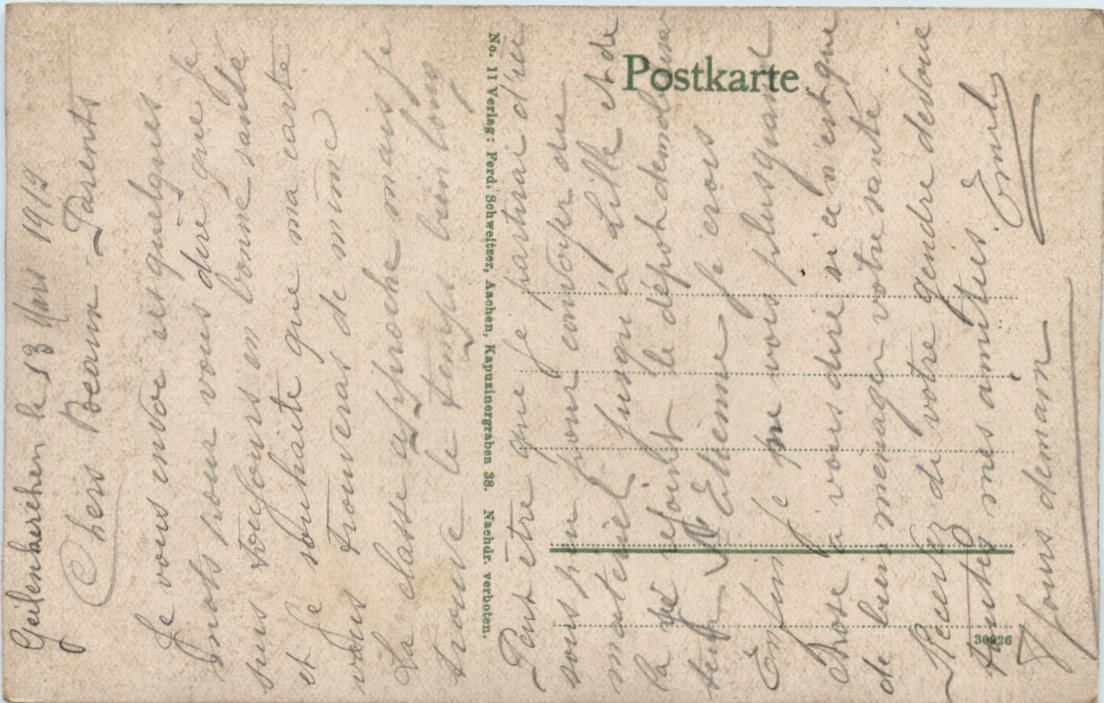 Geilenkirchen le 13 Mars 1919
Chers Beaux-Parents
Je vous envoie ces quelques
mots pour vous dire que je
suis toujours en bonne santé
et je souhaite que ma carte
vous trouveras de même
La classe approche mais je
trouve le temps bien long
Peut être que je partirai d'ici
sous peu pour convoyer du
matériel jusqu'à Lille et de
la je rejoint le dépot demobilisa
teur St Etienne je crois
Enfin je ne vois plus grand
chose à vous dire si ce n'est que
de bien menager votre santé
Recevez de votre gendre devoué
toutes mes amitiés. Emile
A Jours demain
Postkarte
No. 11 Verlag: Ferd. Schweitzer, Aachen, Kapuzinergraben 38. Nachdr. verboten.
30926